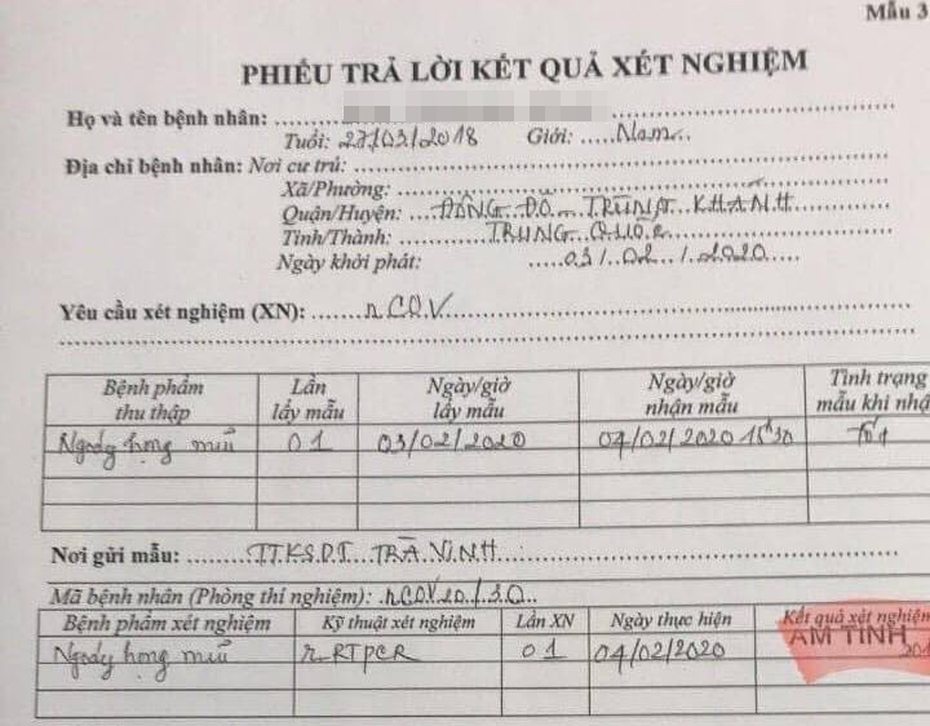 Mẫu 3
PHIẾU TRẢ LỜI KẾT QUẢ XÉT NGHIỆM
Họ và tên bệnh nhân:
Tuổi: 27/03/2018 Giới: Nam
Địa chỉ bệnh nhân: Nơi cư trú:
Xã/Phường:
Quận/Huyện: ĐÔNG ĐÔ TRÙNG KHÁNH
Tỉnh/Thành: TRUNG QUỐC
Ngày khởi phát: 03/02/2020
Yêu cầu xét nghiệm (XN): nCOV
Bệnh phẩm thu thập Lần lấy mẫu Ngày/giờ lấy mẫu Ngày/giờ nhận mẫu Tình trạng mẫu khi nhậ
Ngoáy họng mũi 01 03/02/2020 04/02/2020 15h30 Tốt
Nơi gửi mẫu: TTKSDT TRÀ VINH
Mã bệnh nhân (Phòng thí nghiệm): nCOV20/30
Bệnh phẩm xét nghiệm Kỹ thuật xét nghiệm Lần XN Ngày thực hiện Kết quả xét nghiệm
Ngoáy họng mũi rRTPCR 01 04/02/2020 ÂM TÍNH